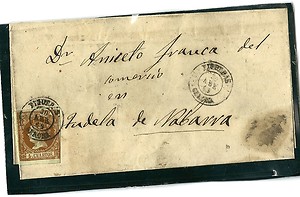 Dn Aniceto Franca del
comercio
en
Tudela de Nabarra
FIGUERAS
FIGUERAS
4 CUARTOS